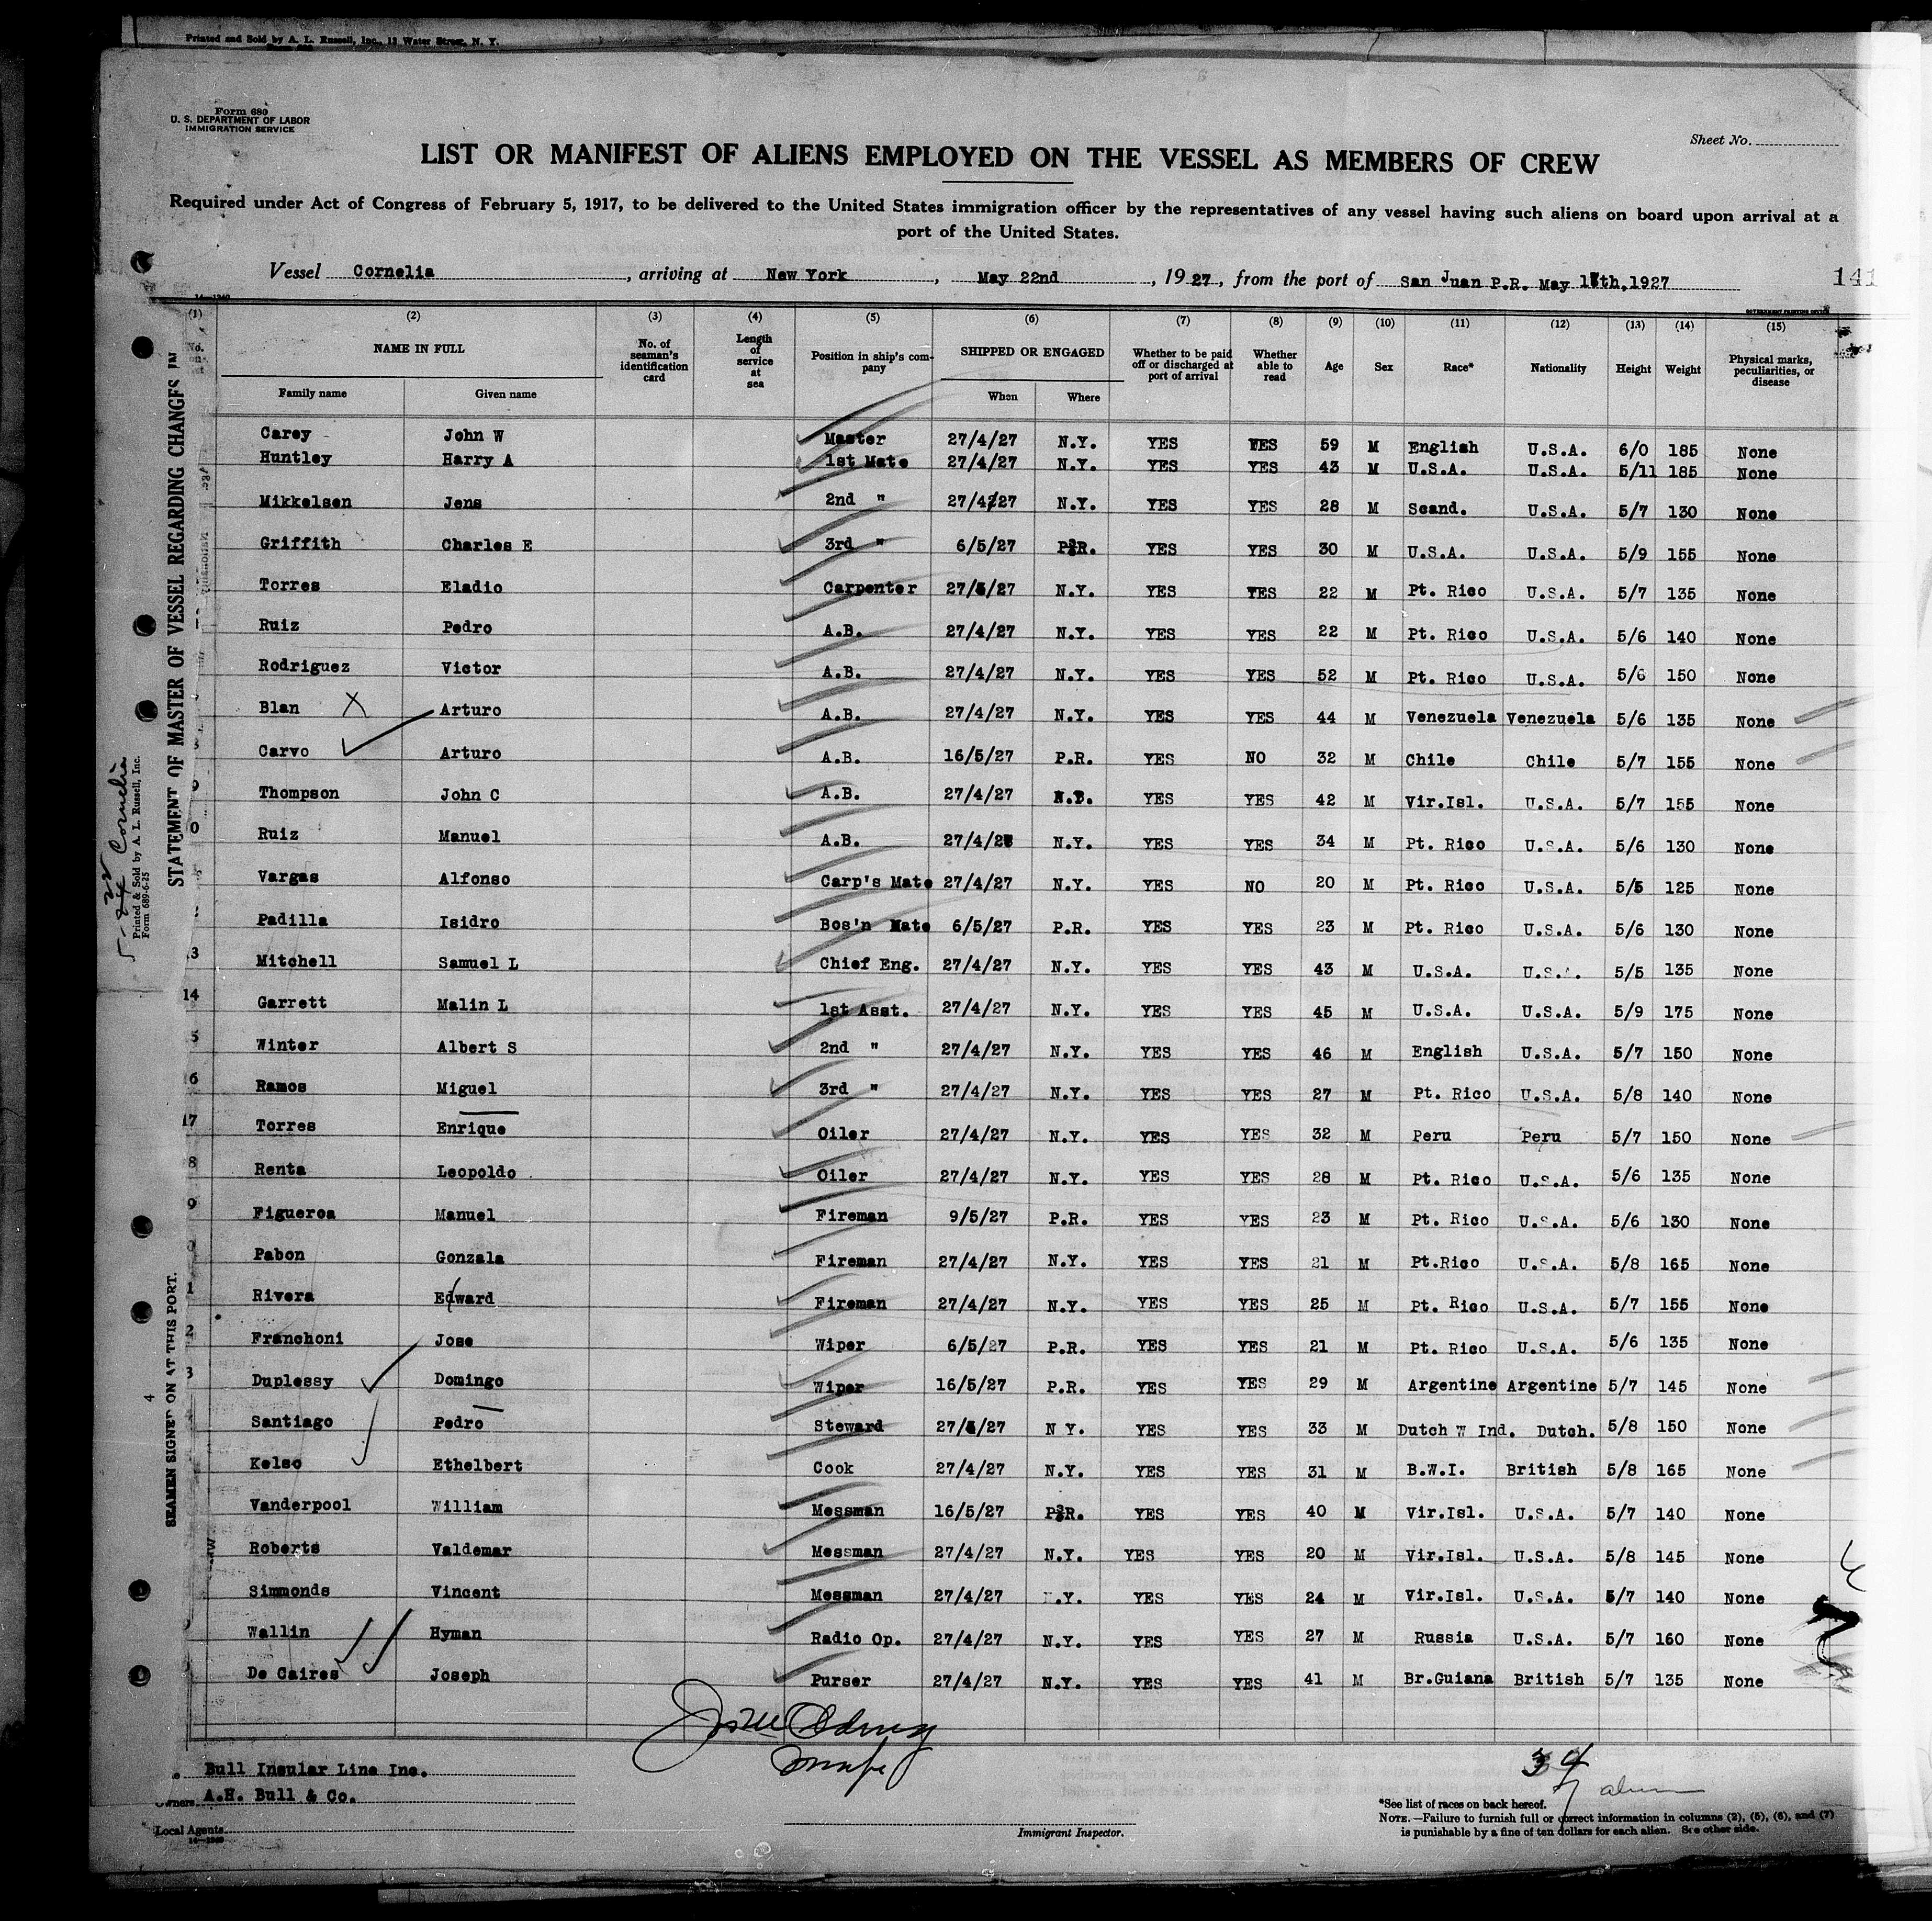 Printed and Sold by A. L. Russell, Inc., 13 Water Street, N. Y.
Form 680
U. S. DEPARTMENT OF LABOR
IMMIGRATION SERVICE
Sheet No.
LIST OR MANIFEST OF ALIENS EMPLOYED ON THE VESSEL AS MEMBERS OF CREW
Required under Act of Congress of February 5, 1917, to be delivered to the United States immigration officer by the representatives of any vessel having such aliens on board upon arrival at a
port of the United States.
Vessel Cornelia, arriving at New York, May 22nd, 1927, from the port of San Juan P.R. May 1 th,1927
141
14—1240
(1) (2) (3) (4) (5) (6) (7) (8) (9) (10) (11) (12) (13) (14) (15)
No. on NAME IN FULL No. of seaman's identification card Length of service at sea Position in ship's company SHIPPED OR ENGAGED Whether to be paid off or discharged at port of arrival Whether able to read Age Sex Race* Nationality Height Weight Physical marks, peculiarities, or disease
Family name Given name When Where
Carey John W Master 27/4/27 N.Y. YES YES 59 M English U.S.A. 6/0 185 None
Huntley Harry A 1st Mate 27/4/27 N.Y. YES YES 43 M U.S.A. U.S.A. 5/11 185 None
Mikkelsen Jens 2nd " 27/4/27 N.Y. YES YES 28 M Scand. U.S.A. 5/7 130 None
Griffith Charles E 3rd " 6/5/27 P.R. YES YES 30 M U.S.A. U.S.A. 5/9 155 None
Torres Eladio Carpenter 27/4/27 N.Y. YES YES 22 M Pt. Rico U.S.A. 5/7 135 None
Ruiz Pedro A.B. 27/4/27 N.Y. YES YES 22 M Pt. Rico U.S.A. 5/6 140 None
Rodriguez Victor A.B. 27/4/27 N.Y. YES YES 52 M Pt. Rico U.S.A. 5/6 150 None
Blan X Arturo A.B. 27/4/27 N.Y. YES YES 44 M Venezuela Venezuela 5/6 135 None
Carvo Arturo A.B. 16/5/27 P.R. YES NO 32 M Chile Chile 5/7 155 None
Thompson John C A.B. 27/4/27 YES YES 42 M Vir.Isl. U.S.A. 5/7 155 None
Ruiz Manuel A.B. 27/4/27 N.Y. YES YES 34 M Pt. Rico U.S.A. 5/6 130 None
Vargas Alfonso Carp's Mate 27/4/27 N.Y. YES NO 20 M Pt. Rico U.S.A. 5/5 125 None
Padilla Isidro Bos'n Mate 6/5/27 P.R. YES YES 23 M Pt. Rico U.S.A. 5/6 130 None
3 Mitchell Samuel L Chief Eng. 27/4/27 N.Y. YES YES 43 M U.S.A. U.S.A. 5/5 135 None
14 Garrett Malin L 1st Asst. 27/4/27 N.Y. YES YES 45 M U.S.A. U.S.A. 5/9 175 None
5 Winter Albert S 2nd " 27/4/27 N.Y. YES YES 46 M English U.S.A. 5/7 150 None
6 Ramos Miguel 3rd " 27/4/27 N.Y. YES YES 27 M Pt. Rico U.S.A. 5/8 140 None
17 Torres Enrique Oiler 27/4/27 N.Y. YES YES 32 M Peru Peru 5/7 150 None
8 Renta Leopoldo Oiler 27/4/27 N.Y. YES YES 28 M Pt. Rico U.S.A. 5/6 135 None
9 Figueroa Manuel Fireman 9/5/27 P.R. YES YES 23 M Pt. Rico U.S.A. 5/6 130 None
Pabon Gonzala Fireman 27/4/27 N.Y. YES YES 21 M Pt.Rico U.S.A. 5/8 165 None
1 Rivera Edward Fireman 27/4/27 N.Y. YES YES 25 M Pt. Rico U.S.A. 5/7 155 None
2 Franchoni Jose Wiper 6/5/27 P.R. YES YES 21 M Pt. Rico U.S.A. 5/6 135 None
3 Duplessy Domingo Wiper 16/5/27 P.R. YES YES 29 M Argentine Argentine 5/7 145 None
Santiago Pedro Steward 27/4/27 N Y. YES YES 33 M Dutch W Ind. Dutch. 5/8 150 None
Kelso Ethelbert Cook 27/4/27 N.Y. YES YES 31 M B.W.I. British 5/8 165 None
Vanderpool William Messman 16/5/27 P.R. YES YES 40 M Vir.Isl. U.S.A. 5/7 140 None
Roberts Valdemar Messman 27/4/27 N.Y. YES YES 20 M Vir.Isl. U.S.A. 5/8 145 None
Simmonds Vincent Messman 27/4/27 N.Y. YES YES 24 M Vir.Isl. U.S.A. 5/7 140 None
Wallin Hyman Radio Op. 27/4/27 N.Y. YES YES 27 M Russia U.S.A. 5/7 160 None
De Caires Joseph Purser 27/4/27 N.Y. YES YES 41 M Br.Guiana British 5/7 135 None
Bull Insular Line Inc.
Owners A.H. Bull & Co.
Local Agents
Immigrant Inspector.
*See list of races on back hereof.
NOTE.—Failure to furnish full or correct information in columns (2), (5), (6), and (7)
is punishable by a fine of ten dollars for each alien. See other side.
STATEMENT OF MASTER OF VESSEL REGARDING CHANGES IN
SEAMEN SIGNED ON AT THIS PORT.
4
Cornelia
Printed & Sold by A. L. Russell, Inc.
Form 689-6-25